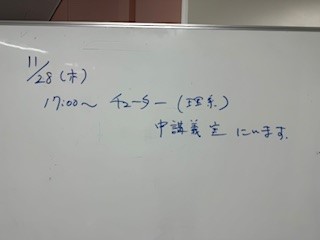 11/28(木)
17:00〜 チューター(理系)
中講義室にいます.